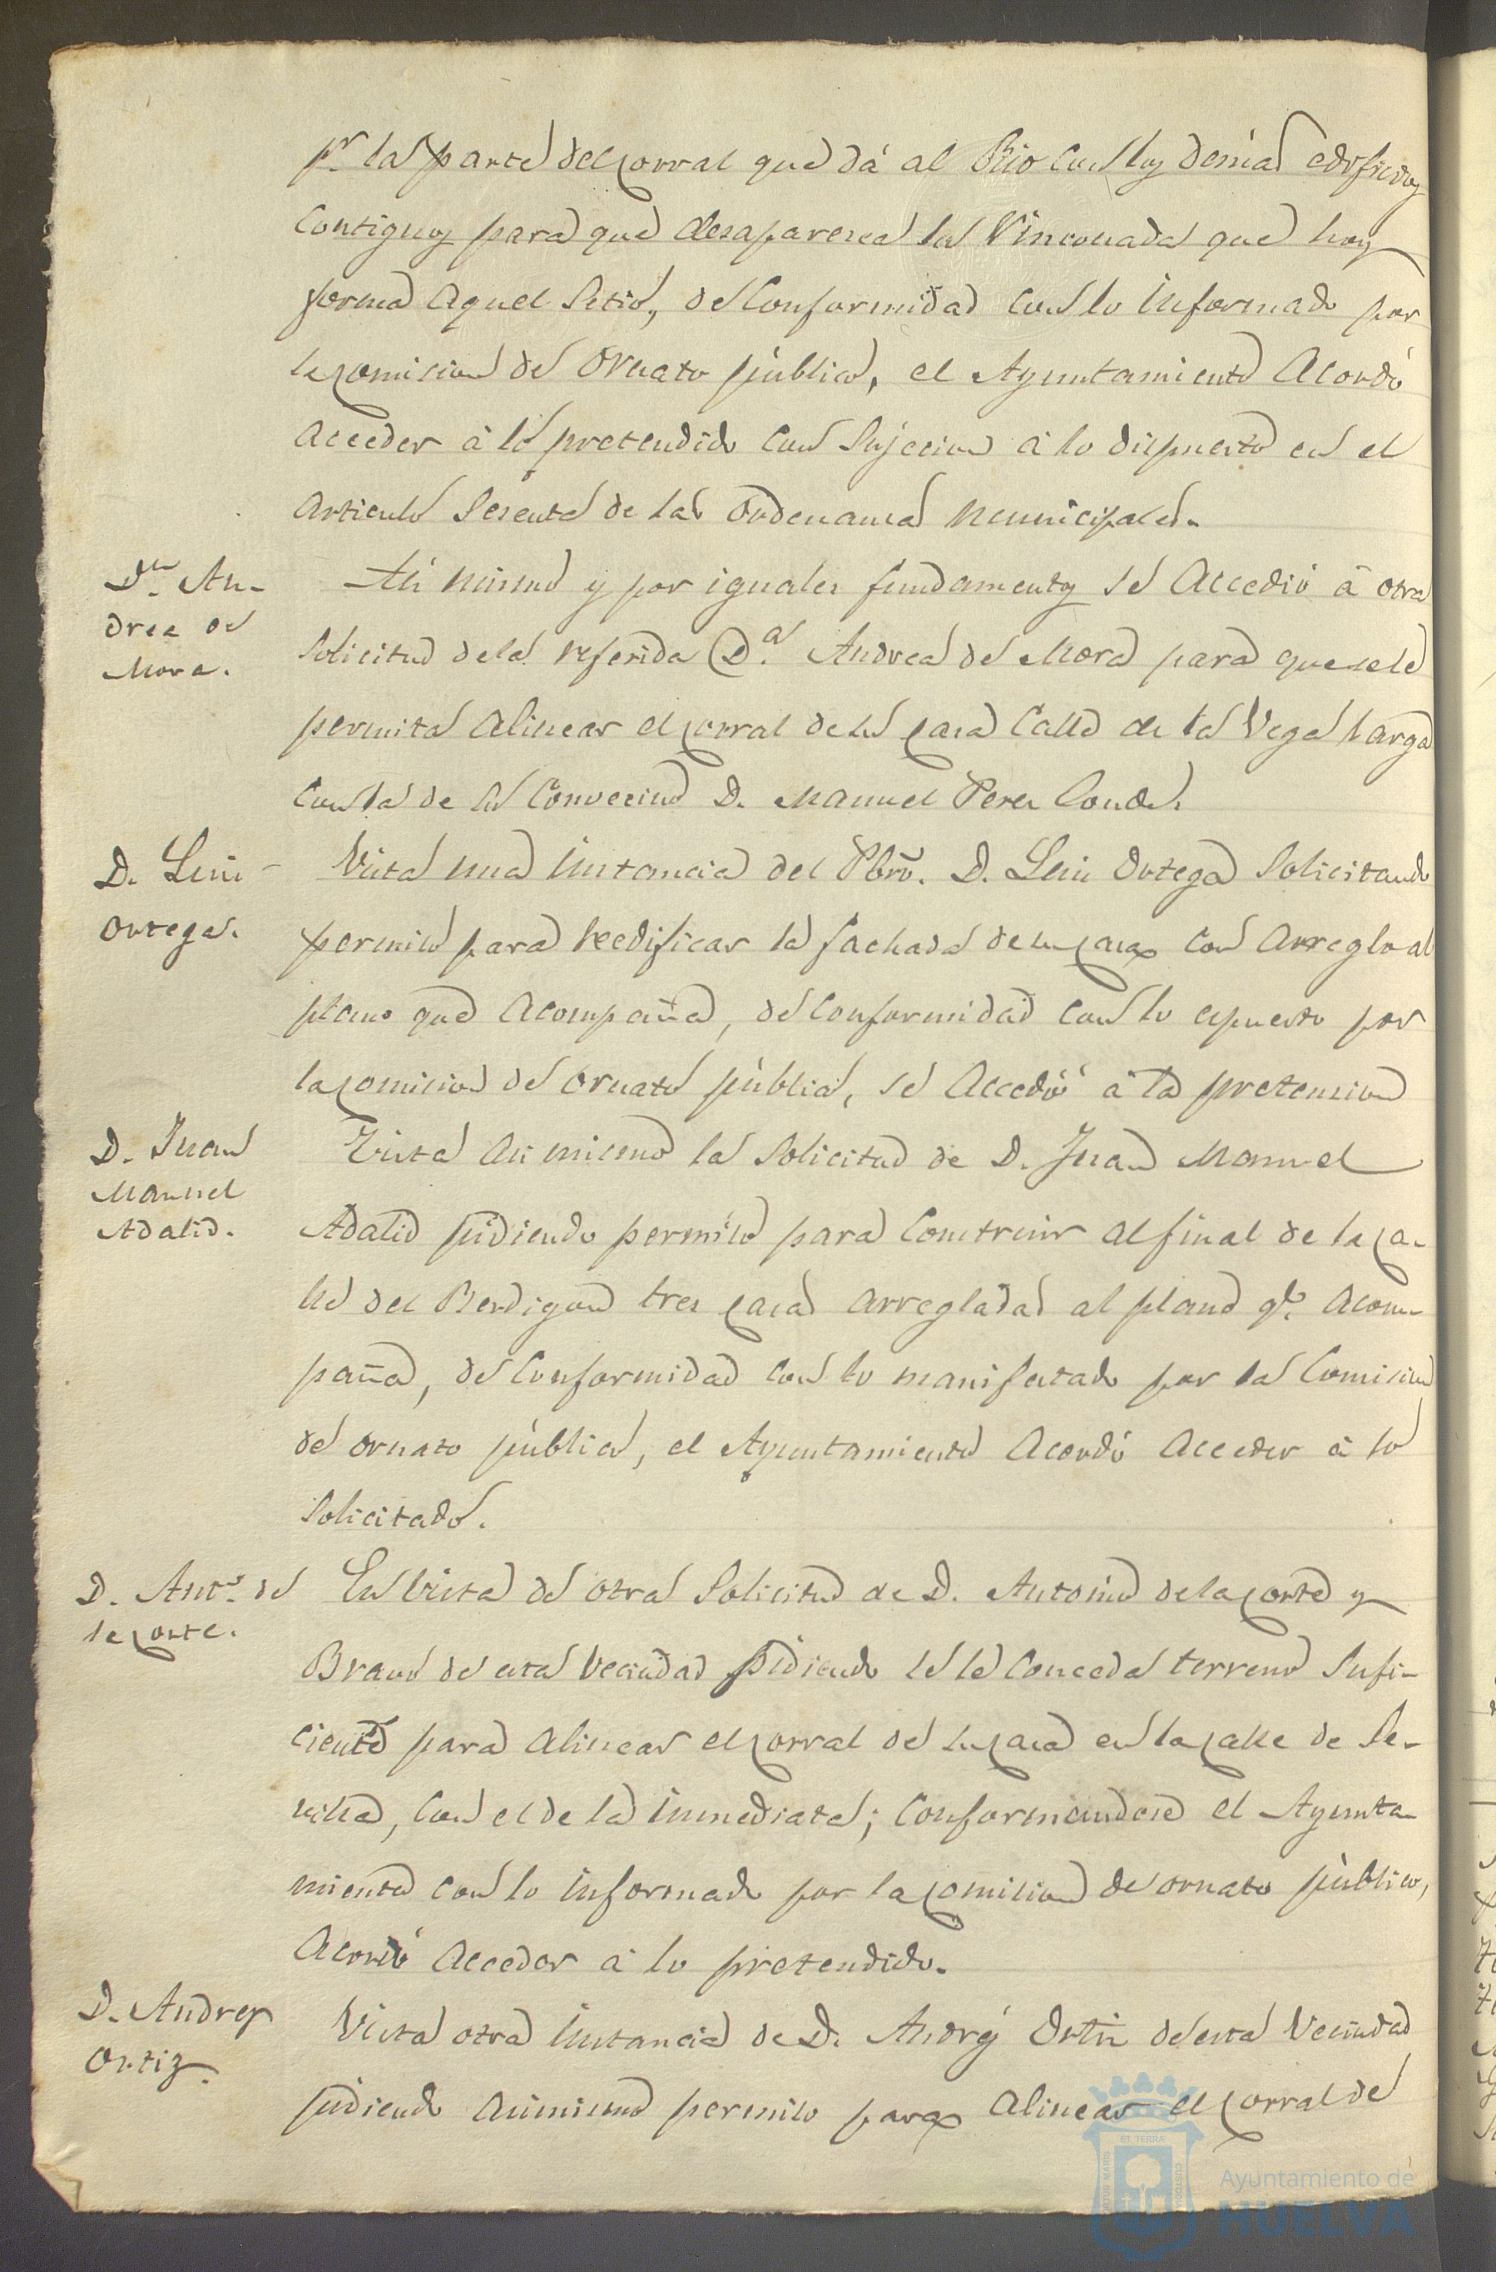 pr. la parte del corral que dá al Rio con los demas edificios
contiguos para que desaparesca la Rinconada que hoy
forma aquel Sitio, de conformidad con lo informado por
la comision de Ornato público, el Ayuntamiento Acordó
acceder á lo pretendido con Sujecion á lo dispuesto en el
articulo Sesenta de las Ordenanzas Municipales.
Da. An-
drea de
Mora.
Asi mismo y por iguales fundamentos se Accedió á otra
Solicitud de la referida Da. Andrea de Mora para que se le
permita Alinear el corral de su casa Calle de la Vega larga
con la de su Convecino D. Manuel Perez Conde.
D. Luis
Ortega.
Vista una instancia del Pbro. D. Luis Ortega Solicitando
permiso para reedificar la fachada de su casa con Arreglo al
plano que Acompaña, de conformidad con lo espuesto por
la comision de ornato público, se Accedió á la pretension
D. Juan
Manuel
Adalid.
Vista asi mismo la Solicitud de D. Juan Manuel
Adalid pidiendo permiso para Construir al final de la ca-
lle del Berdigon tres casas arregladas al plano qe. Acom-
paña, de Conformidad con lo manifestado por la Comision
de ornato público, el Ayuntamiento Acordó Acceder á lo
Solicitado.
D. Anto. de
la corte.
En vista de otra Solicitud de D. Antonio de la corte y
Bravo de esta Vecindad Pidiendo se le Conceda terreno Sufi-
ciente para Alinear el corral de su casa en la calle de Se-
villa, con el de la inmediata; conformandose el Ayunta-
miento con lo informado por la comision de ornato público,
Acordó Acceder á lo pretendido.
D. Andres
Ortiz.
Vista otra instancia de D. Andrés Ortiz de esta Vecindad
pidiendo asimismo permiso para Alinear el corral de
Ayuntamiento de
HUELVA